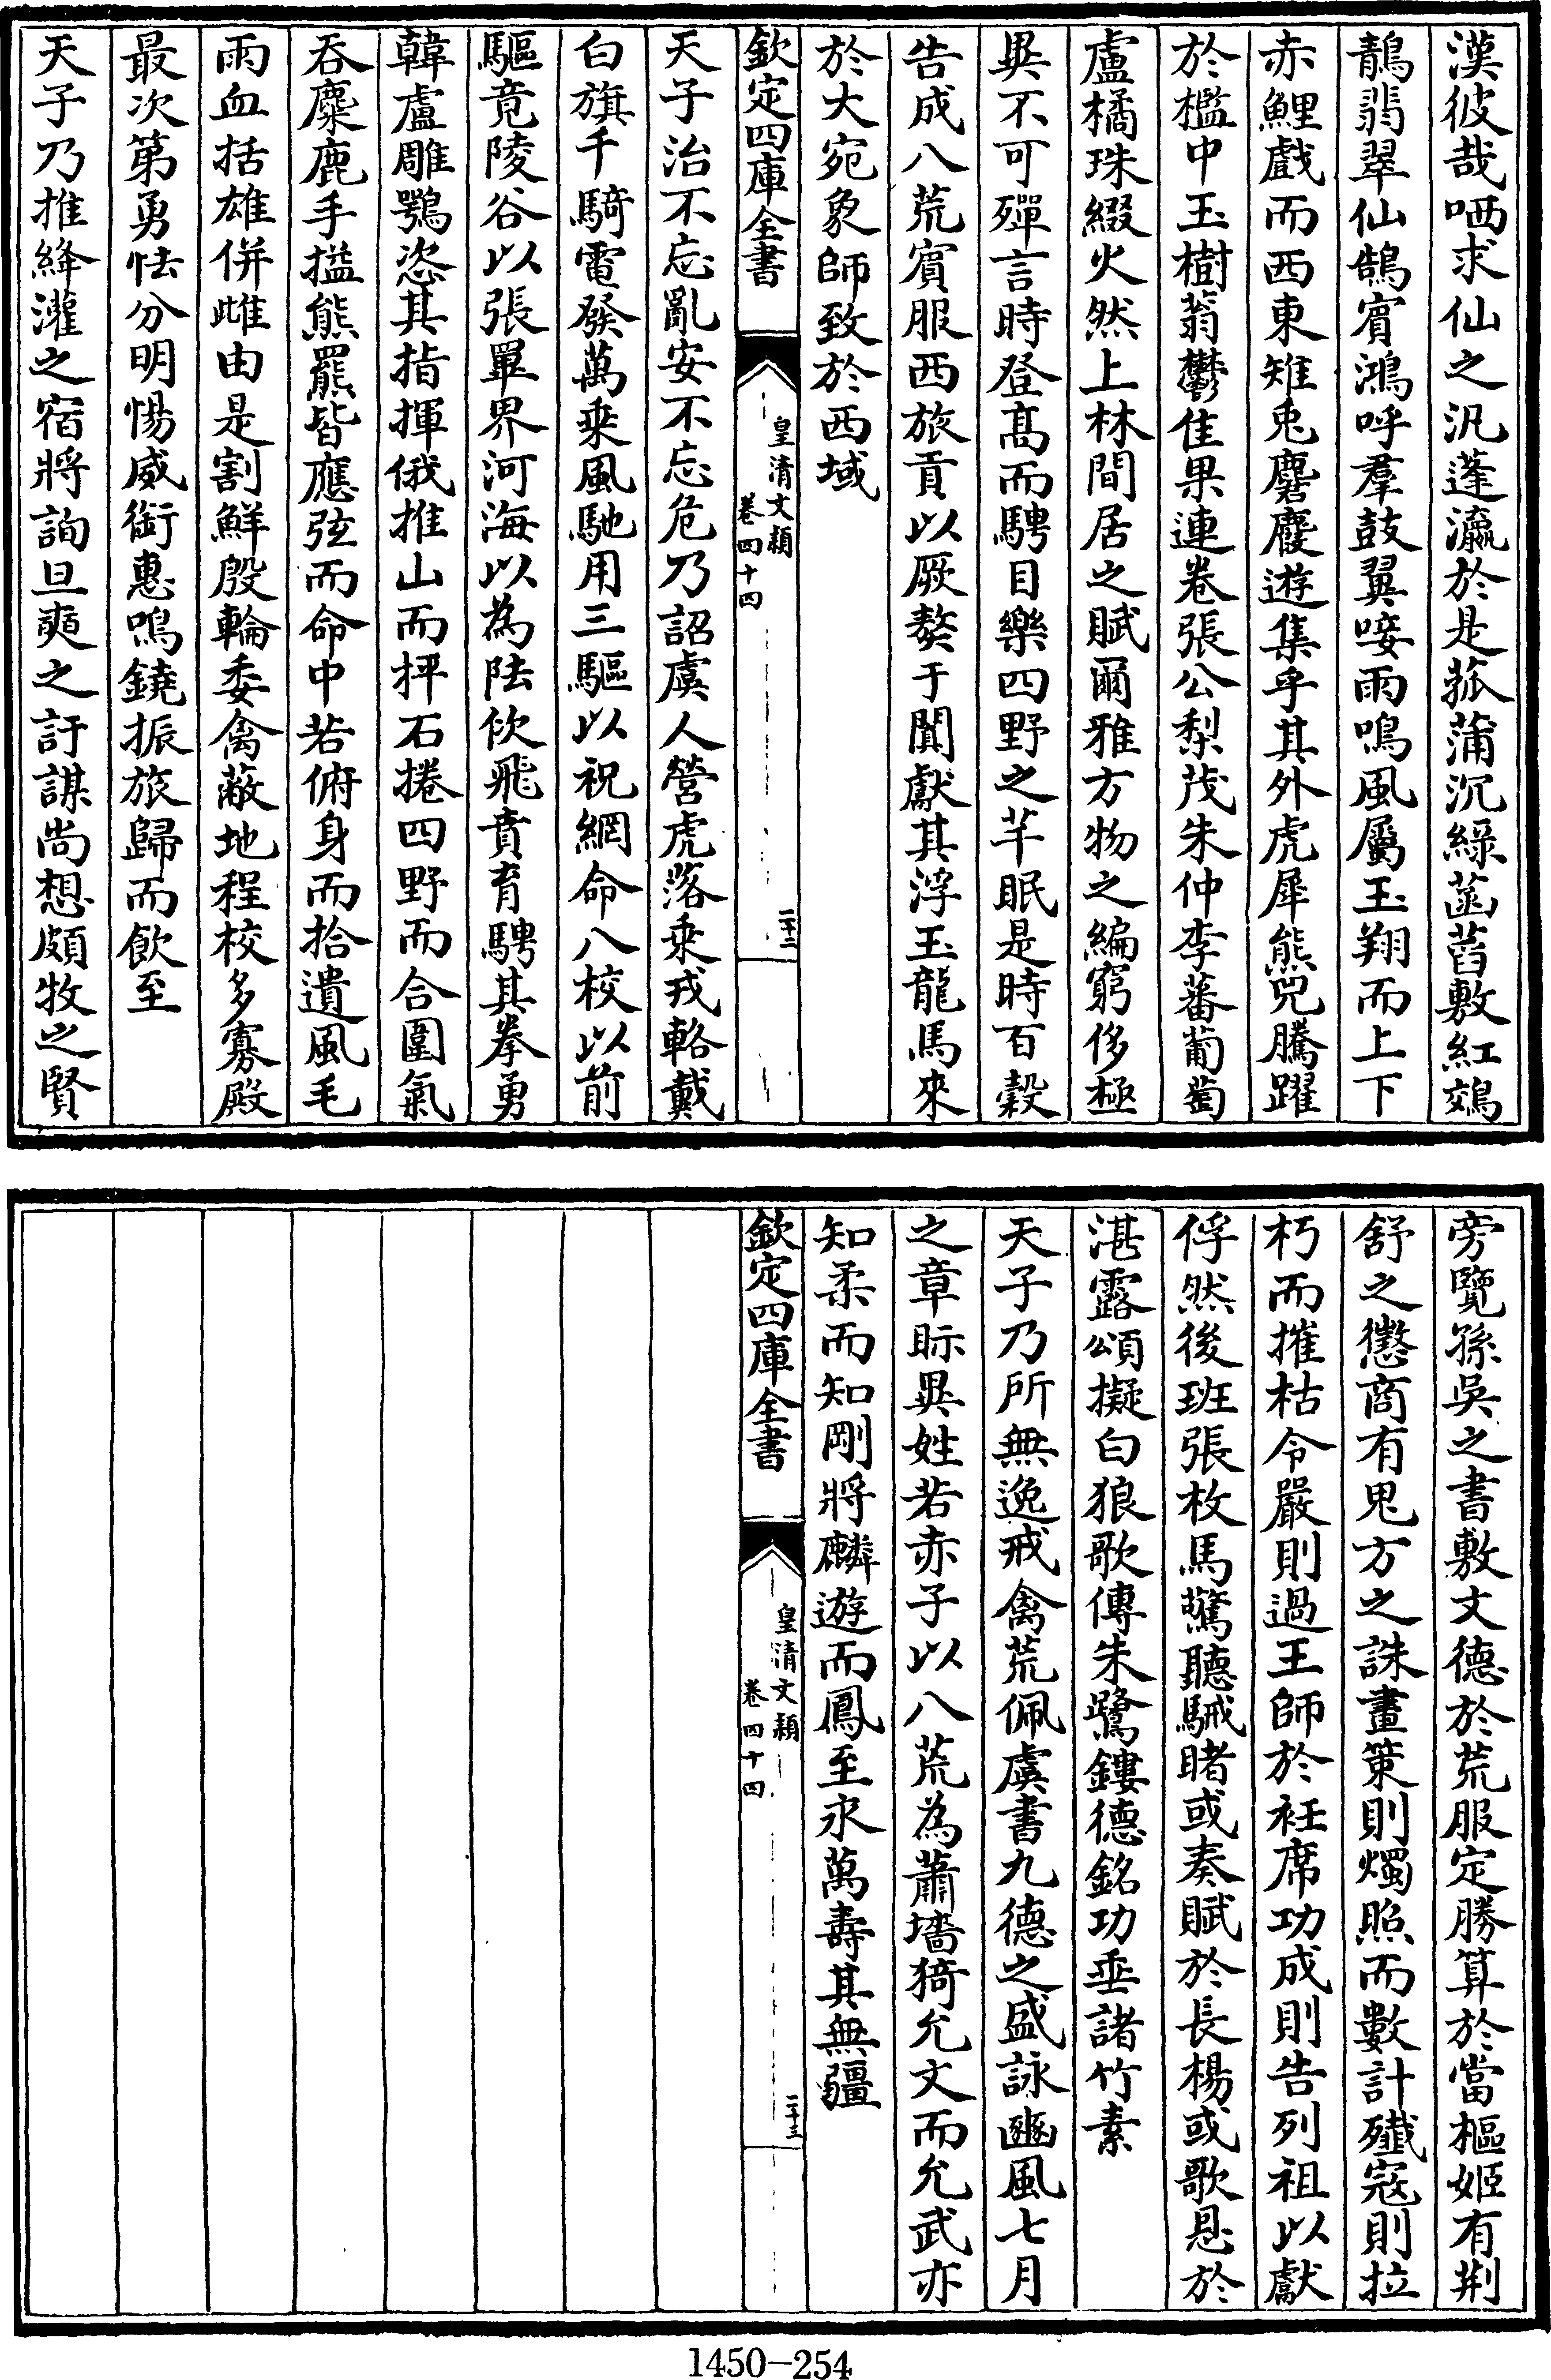 漢彼哉哂求仙之汎蓬瀛於是菰蒲沉緑菡萏敷紅鵁
鶄翡翠仙鵠賓鴻呼羣鼓翼唼雨鳴風屬玉翔而上下
赤鯉戲而西東雉兎麏麚遊集乎其外虎犀熊兕騰躍
於檻中玉樹蓊鬱佳果連卷張公梨茂朱仲李蕃葡萄
盧橘珠綴火然上林間居之賦爾雅方物之編窮侈極
異不可殫言時登髙而騁目樂四野之芊眠是時百穀
告成八荒賓服西旅貢以厥獒于闐獻其浮玉龍馬來
於大宛象師致於西域
欽定四庫全書
皇清文穎
卷四十四
二十二
天子治不忘亂安不忘危乃詔虞人營虎落乗戎輅戴
白旗千騎電發萬乗風馳用三驅以祝網命八校以前
驅竟陵谷以張罼界河海以為阹佽飛賁育騁其拳勇
韓盧雕鶚恣其指揮俄推山而抨石捲四野而合圍氣
吞麋鹿手搤熊羆皆應弦而命中若俯身而拾遺風毛
雨血括雄併雌由是割鮮殷輪委禽蔽地程校多寡殿
最次第勇怯分明惕威銜惠鳴鐃振旅歸而飲至
天子乃推絳灌之宿將詢旦奭之訏謀尚想頗牧之賢
旁覽孫吳之書敷文德於荒服定勝算於當樞姬有荆
舒之懲商有鬼方之誅畫策則燭照而數計殱寇則拉
朽而摧枯令嚴則過王師於衽席功成則告列祖以獻
俘然後班張枚馬驚聽駴睹或奏賦於長楊或歌恩於
湛露頌擬白狼歌傳朱鷺鏤德銘功垂諸竹素
天子乃所無逸戒禽荒佩虞書九德之盛詠豳風七月
之章眎異姓若赤子以八荒為蕭墻猗允文而允武亦
知柔而知剛將麟遊而鳳至永萬壽其無疆
欽定四庫全書
皇清文穎
卷四十四
二十三
1450-254